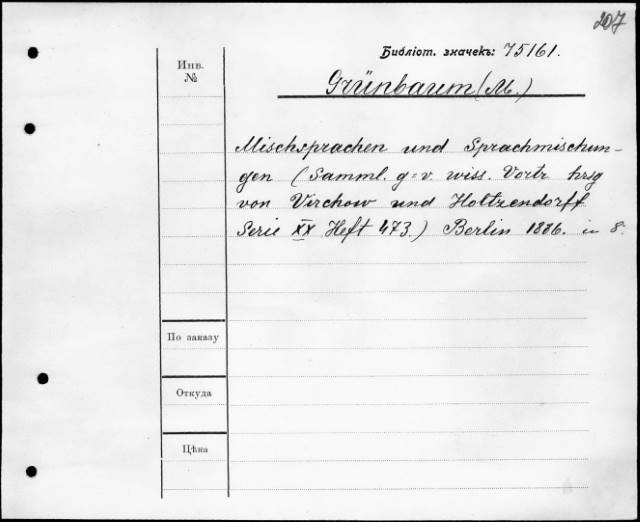 207
Библіот. значекъ: 75161.
Инв.
№
Grünbaum (M.)
Mischsprachen und Sprachmischun-
gen (Samml. g=v. wiss. Vortr hrsg
von Virchow und Holtzendorff
Serie XX Heft 473.) Berlin 1886. in 8.
По заказу
Откуда
Цѣна